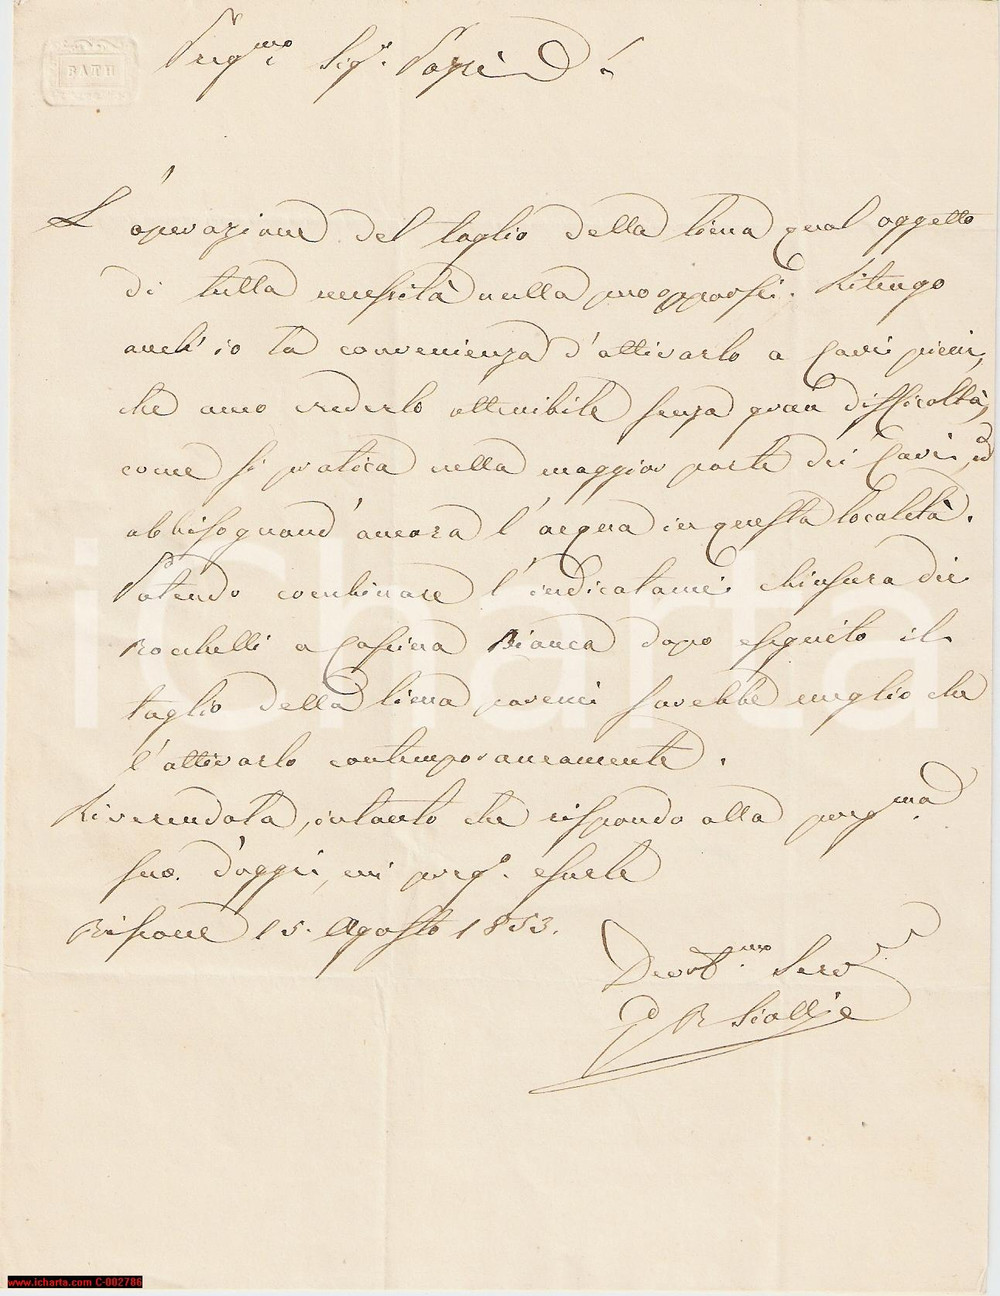 BATH
Preg.mo Sig.r
L'operazione del taglio della lima qual oggetto
di tutta necessità nulla può opporsi. Ritengo
anch'io la convenienza d'attivarlo a Cavi pieni,
che amo crederlo attenibile senza gran difficoltà,
come si pratica nella maggior parte dei Cavi, ed
abbisognand'ancora l'acqua in questa località.
Potendo combinare l'indicatami chiusura dei
Rocchelli a Cassina Bianca dopo eseguito il
taglio della lima paremi sarebbe meglio che
l'attivarlo contemporaneamente.
Riverendola, intanto che rispondo alla preg.ma
sua d'oggi, mi preg.o esserle
Bissone 15. Agosto 1853.
Devot.mo Serv.
iCharta
www.icharta.com C-002786